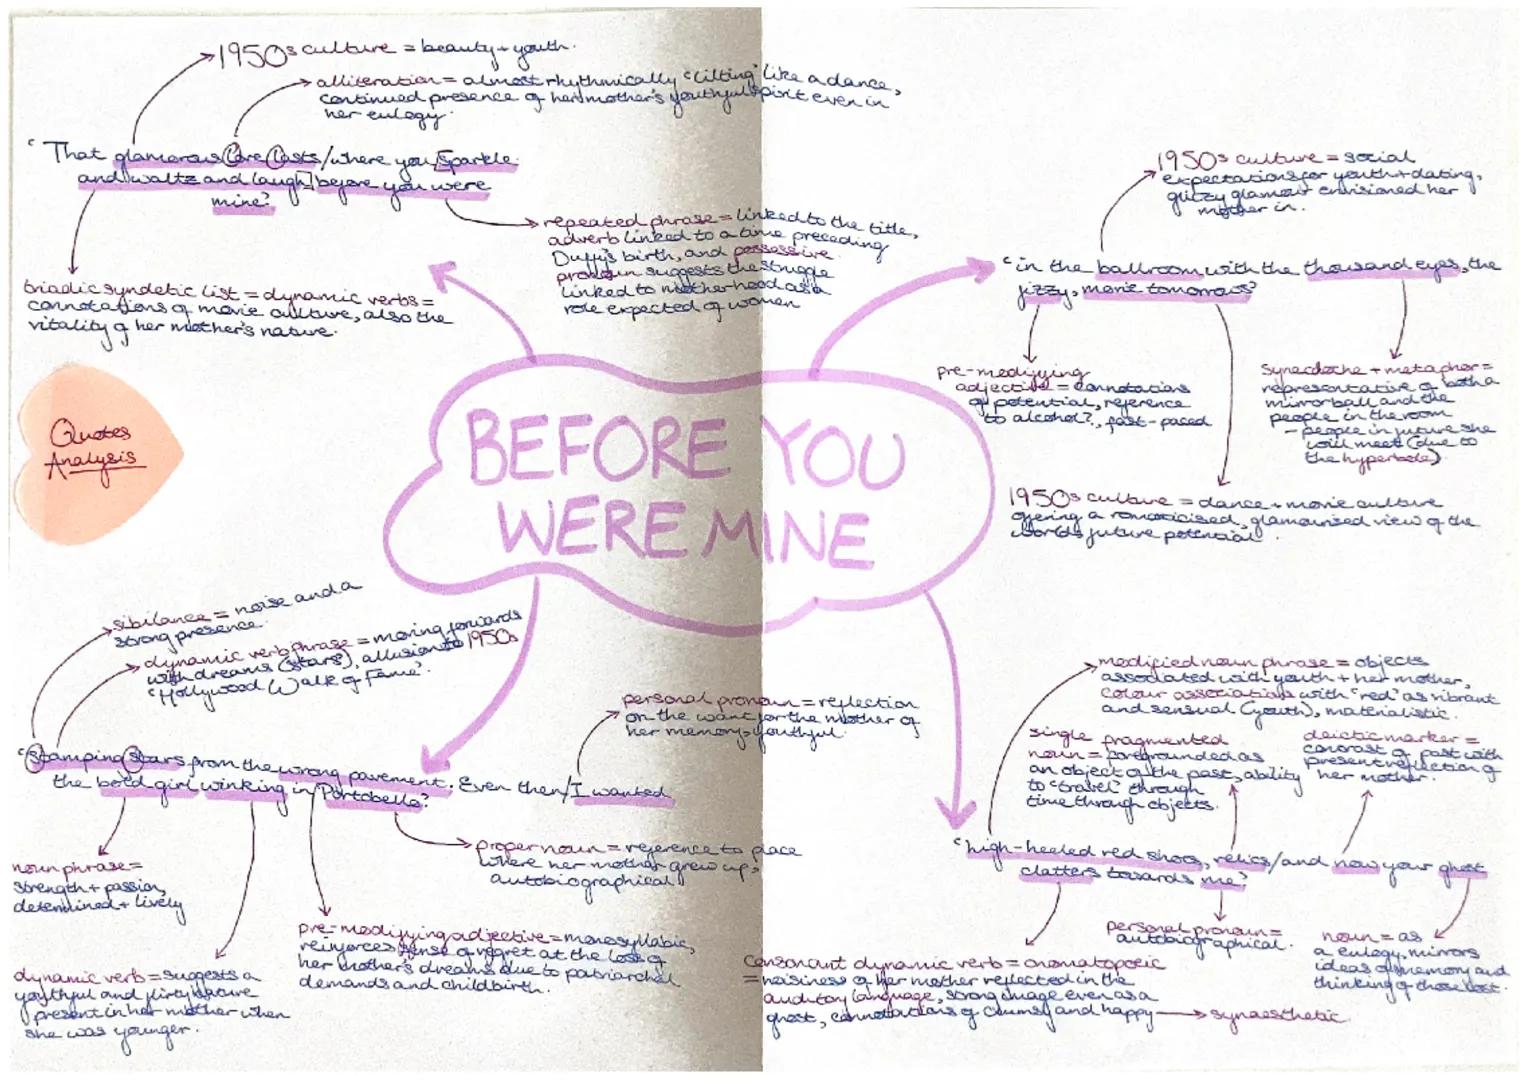 1950s culture = beauty + youth.
alliteration = almost rhythmically 'lilting' like a dance,
continued presence of her mother's youthful spirit even in
her eulogy.
'That glamorous love lasts/where you [sparkle
and waltz and laugh] before you were
mine.'
repeated phrase = linked to the title,
adverb linked to a time preceding
Duffy's birth, and possessive
pronoun suggests the struggle
linked to motherhood as a
role expected of women
triadic syndetic list = dynamic verbs =
connotations of movie culture, also the
vitality of her mother's nature.
Quotes
Analysis
1950s culture = social
expectations for youth + dating,
glitzy glamour envisioned her
mother in.
'in the ballroom with the thousand eyes, the
fizzy, movie tomorrows'
pre-modifying
adjective = connotations
of potential, reference
to alcohol?, fast-paced
synecdoche + metaphor =
representative of both a
mirrorball and the
people in the room
- people in future she
will meet (due to
the hyperbole)
1950s culture = dance + movie culture
offering a romanticised, glamourised view of the
worlds future potential.
BEFORE YOU
WERE MINE
sibilance = noise and a
strong presence.
dynamic verb phrase = moving forwards
with dreams (stars), allusion to 1950s
'Hollywood Walk of Fame'.
personal pronoun = reflection
on the want for the mother of
her memory, youthful.
'stamping stars from the wrong pavement. Even then/I wanted
the bold girl winking in Portobello.'
noun phrase =
strength + passion,
determined + lively
proper noun = reference to place
where her mother grew up,
autobiographical
dynamic verb = suggests a
youthful and flirty nature
present in her mother when
she was younger.
pre-modifying adjective = monosyllabic,
reinforces sense of regret at the loss of
her mother's dreams due to patriarchal
demands and childbirth.
modified noun phrase = objects
associated with youth + her mother,
colour associations with 'red' as vibrant
and sensual (youth), materialistic.
single fragmented
noun = foregrounded as
an object of the past, ability
to 'travel' through
time through objects.
deictic marker =
contrast of past with
present reflection of
her mother.
'high-heeled red shoes, relics/and now your ghost
clatters towards me'
personal pronoun =
autobiographical.
noun = as
a eulogy, mirrors
ideas of memory and
thinking of those lost.
consonant dynamic verb = onomatopoeic
= noisiness of her mother reflected in the
auditory language, strong image even as a
ghost, connotations of clumsy and happy → synaesthetic.